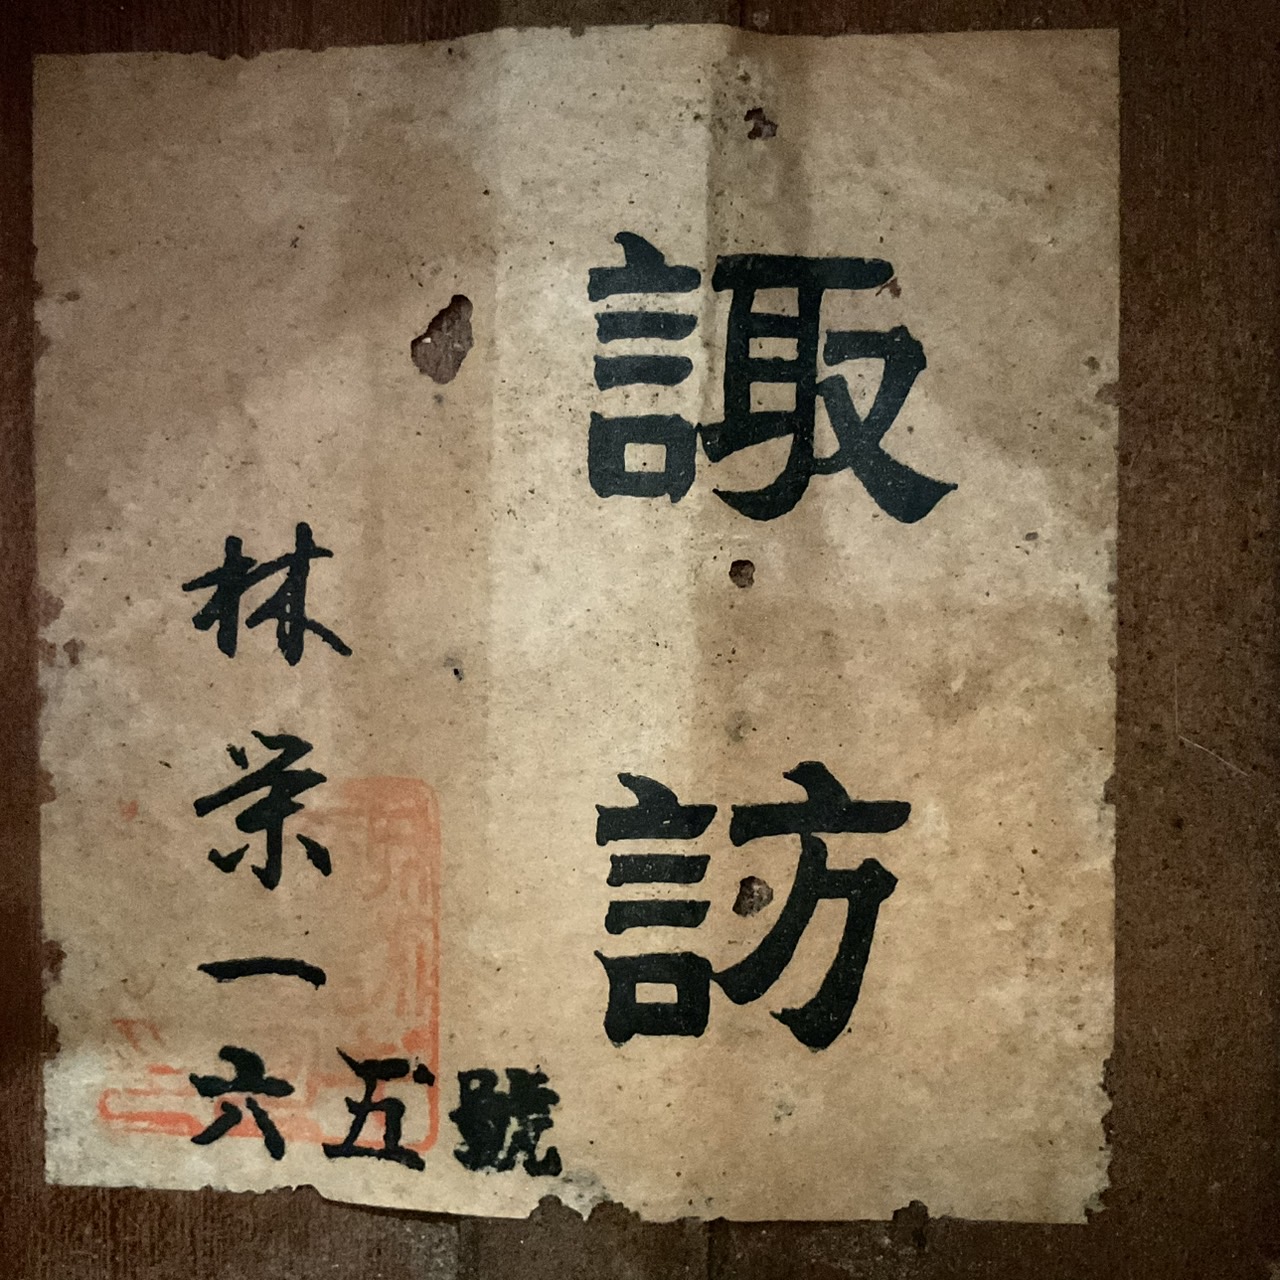 諏訪
林栄一
六五號